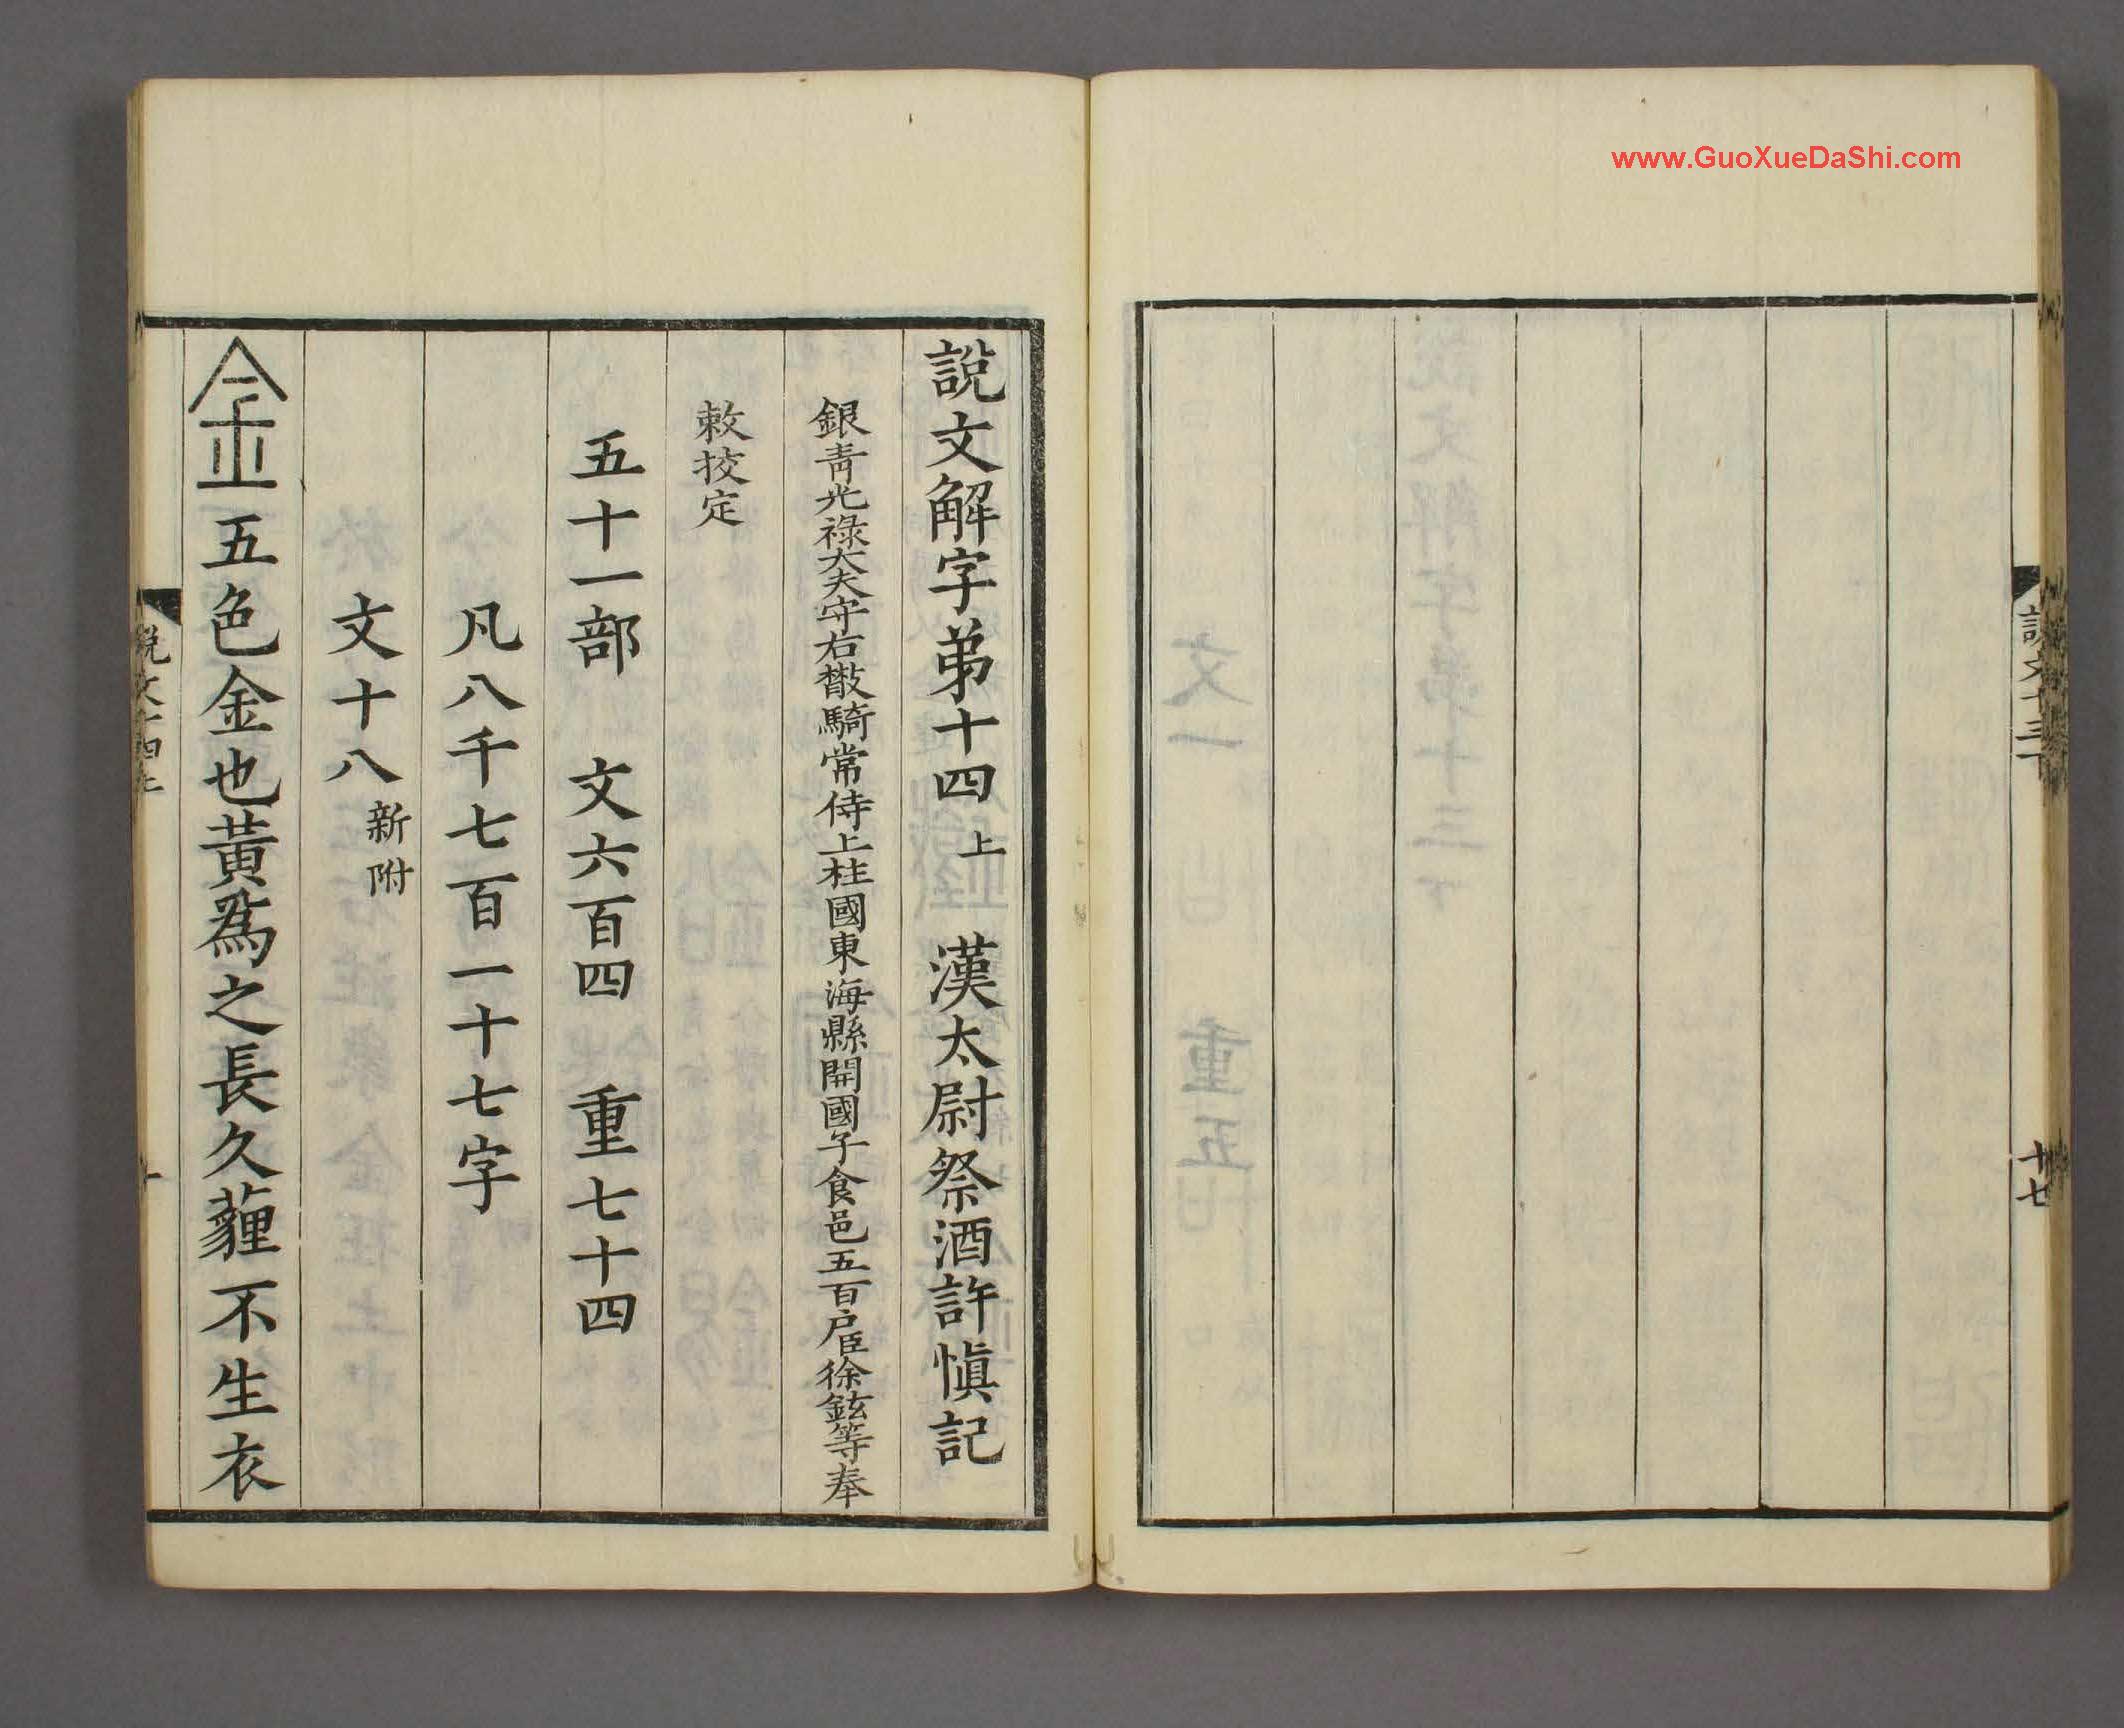 www.GuoXueDaShi.com
說文十三下
十七
說文解字弟十四上　漢太尉祭酒許愼記
銀青光祿大夫守右散騎常侍上柱國東海縣開國子食邑五百户臣徐鉉等奉
敕挍定
五十一部　文六百四　重七十四
凡八千七百一十七字
文十八新附
金五色金也黃爲之長久薶不生衣
說文十四上
一